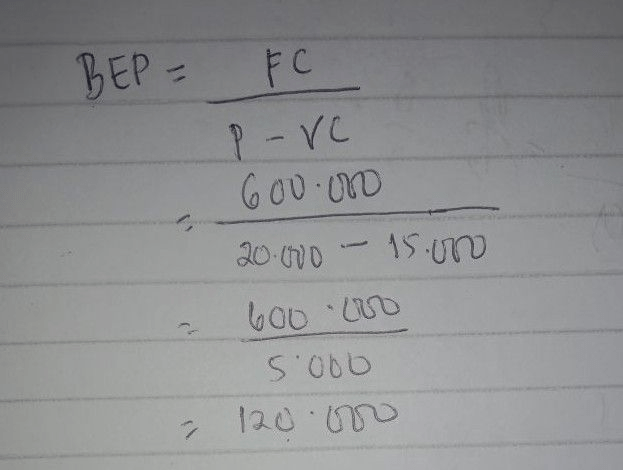 BEP = FC / P - VC
= 600.000 / 20.000 - 15.000
= 600.000 / 5.000
= 120.000